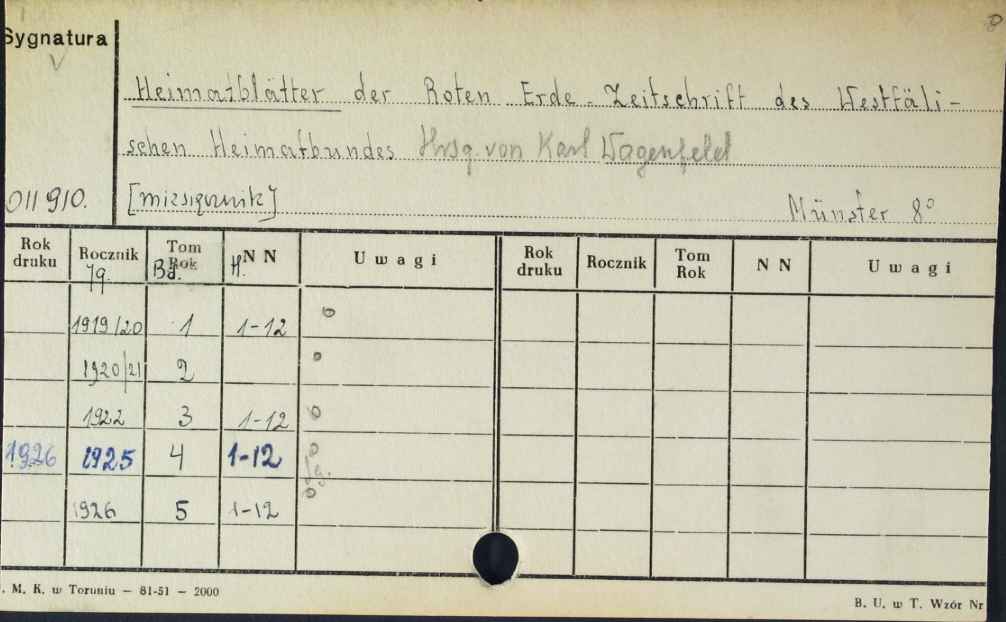 Sygnatura
Heimatblätter der Roten Erde. Zeitschrift des Westfäli-
schen Heimatbundes Hrsg. von Karl Wagenfeld
011 910. [miesięcznik] Münster 8°
Rok druku Rocznik Tom Rok N N Uwagi Rok druku Rocznik Tom Rok N N Uwagi
Jg. Bd. H.
1919/20 1 1-12
1920/21 2
1922 3 1-12
1926 1925 4 1-12
Jg.
1926 5 1-12
. M. K. w Toruniu — 81-51 — 2000
B. U. w T. Wzór Nr